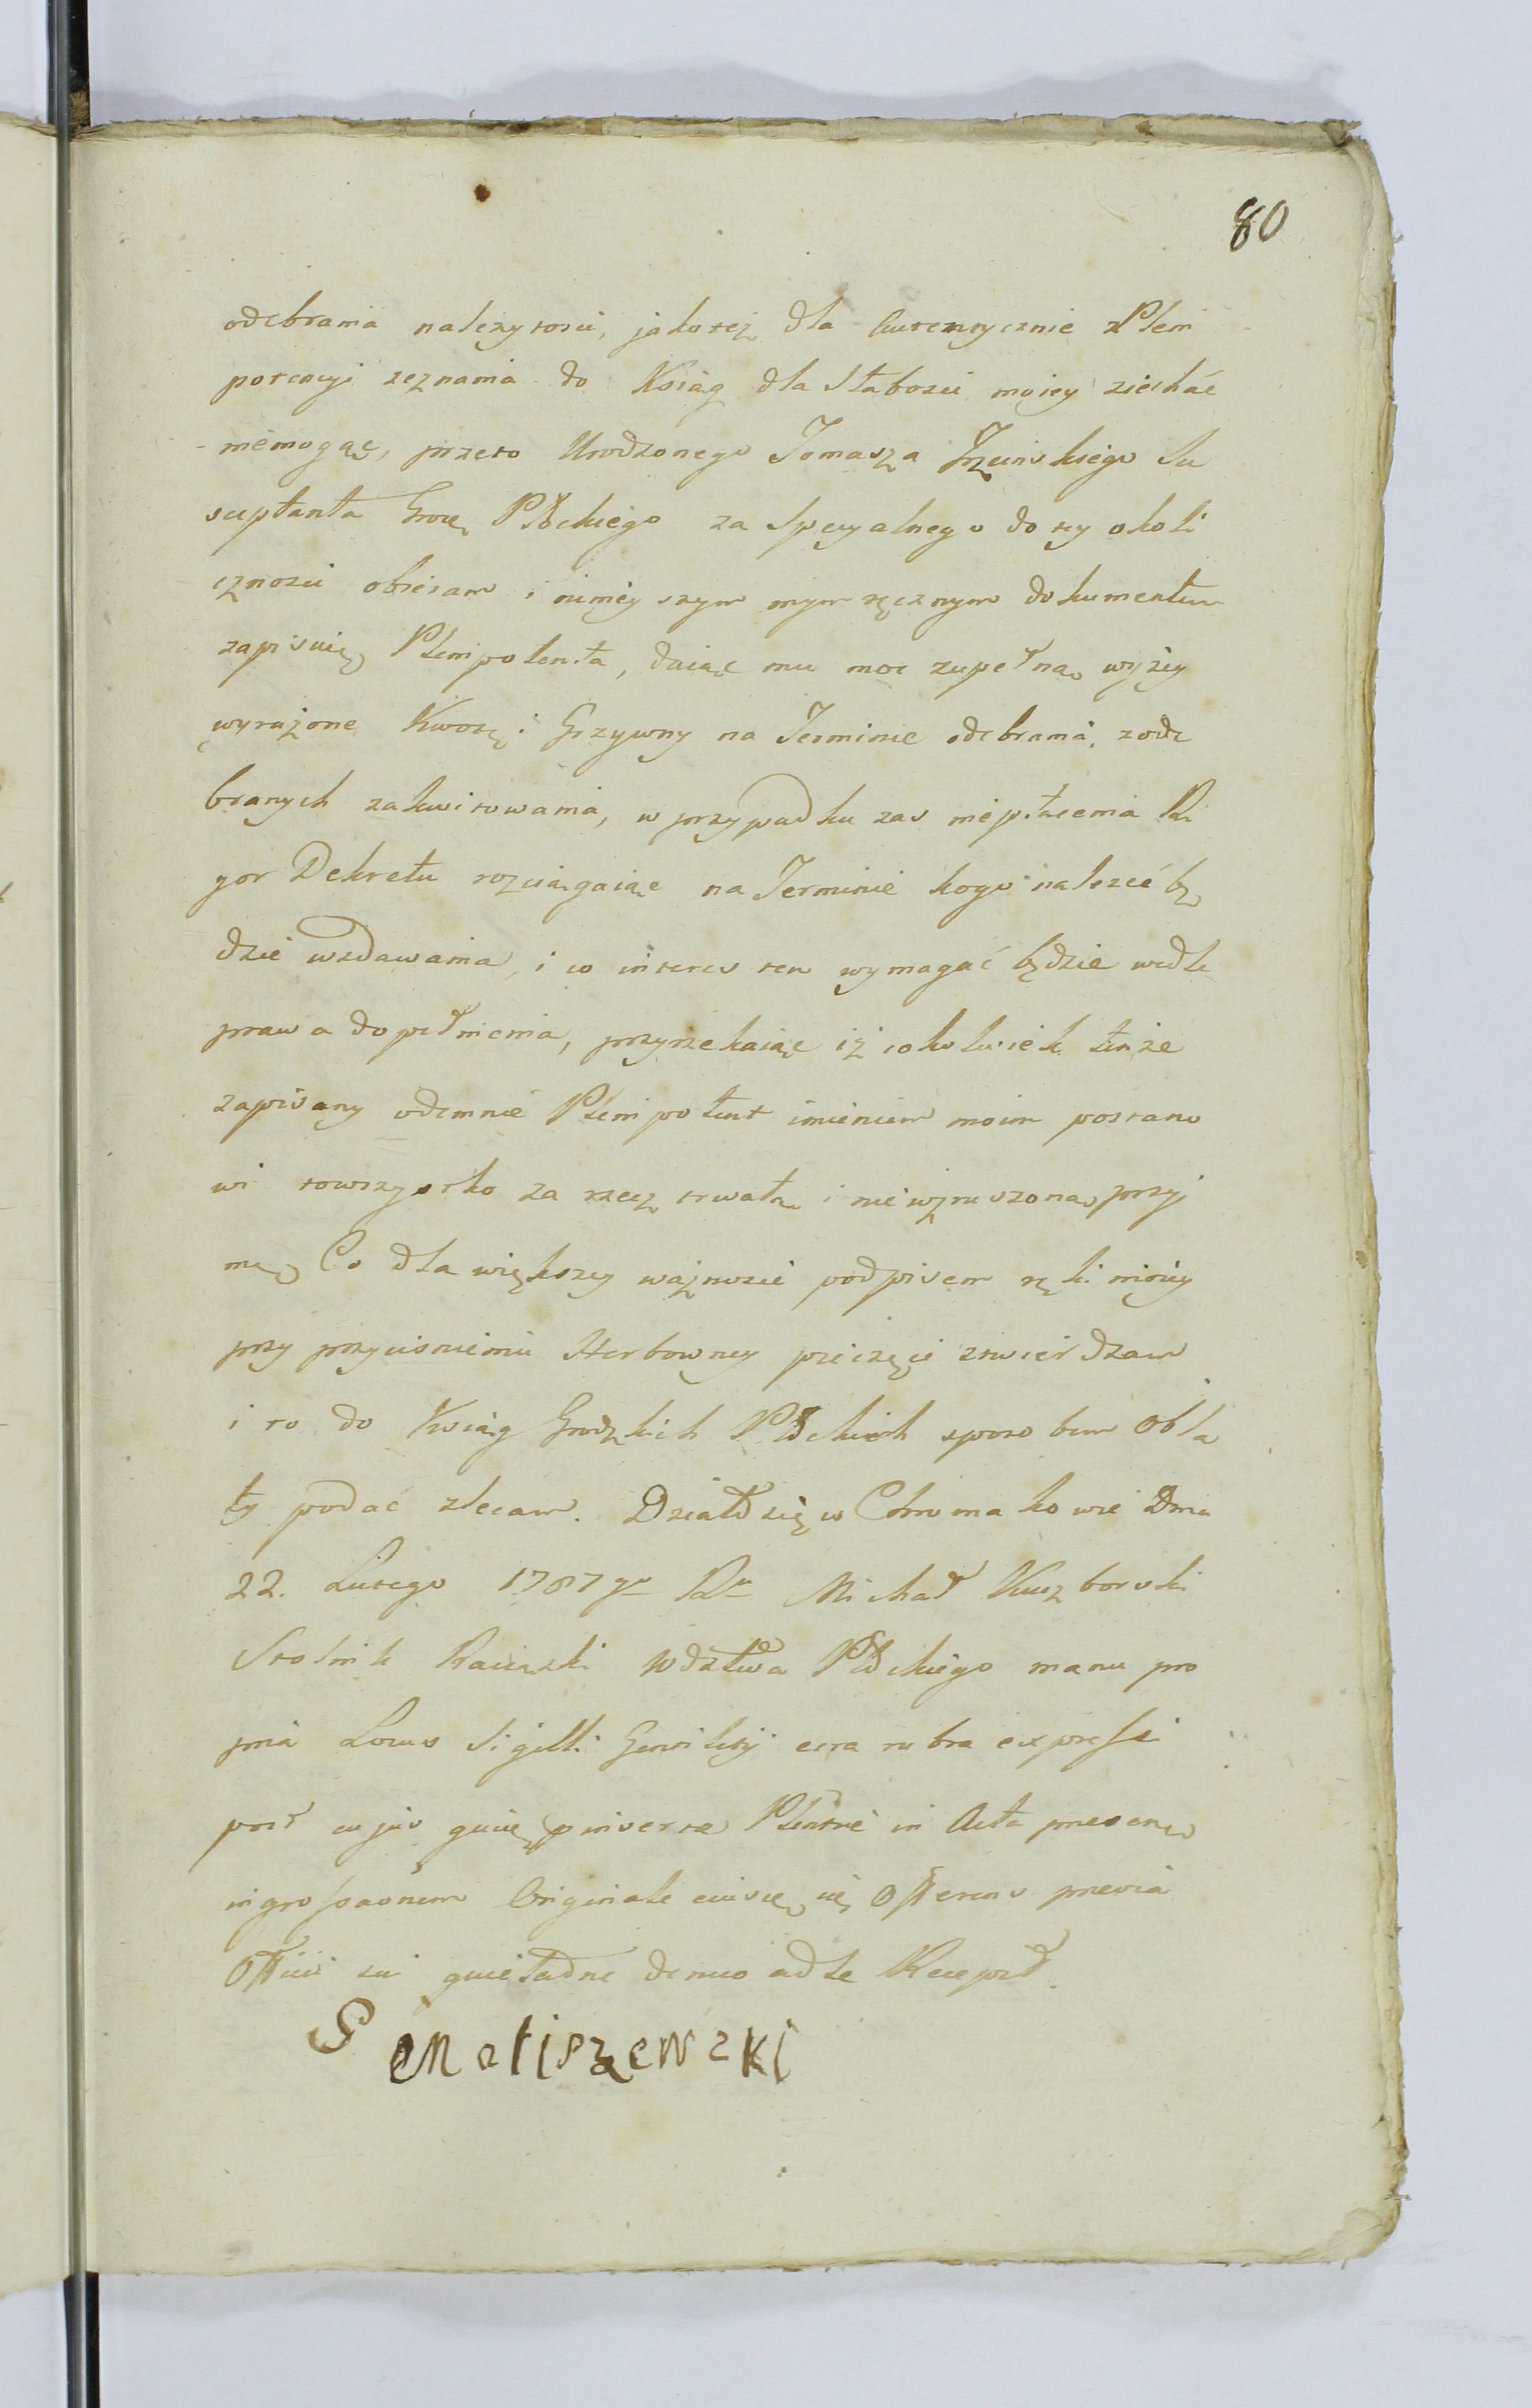 80
odebrania należytosci, jakoteż dla Autentycznie z Pleni
potencyi zeznania do Xsiąg dla Słabosci moiey ziechać
niemogąc, przeto Urodzonego Tomasza Su
sceptanta Grod Płłckiego za Specyalnego do tey okoli
cznosci obieram i ninieyszym mym ręcznym dokumentem
zapisuię Plenipotenta, daiąc mu moc zupełną wyżey
wyrażone Kwotę i Grzywny na Terminie odebrania, zode
branych zakwitowania, w przypadku zas niepłacenia Ri
gor Dekretu rozciągaiąc na Terminie kogo należeć bę
dzie wzdawania, i co interes ten wymagać będzie wedle
prawa dopełnienia, przyrzekaiąc iż cokolwiek tenże
zapisany odemnie Plenipotent imieniem moim postano
wi towszystko za rzecz trwałą i niewzruszoną przyj
mę, Co dla większey ważnosci podpisem ręki moiey
przy przycisnieniu Herbowney pieczęci ztwierdzam
i to do Xsiąg Grodzkich Płłckich sposobem Obla
ty podać zlecam. Działo się w Chromakowie Dnia
22. Lutego 1787go Ru Michał Kuczborski
Stolnik Raciązki Wdztwa Płłckiego manu pro
pria Locus Sigilli Gentilitij cera rubra expressi
post cujus insertae in Acta praesen
ingrossaonem Originale Offerens praevia
Officii sui denuo ad se Recepit.
G Matiszewski